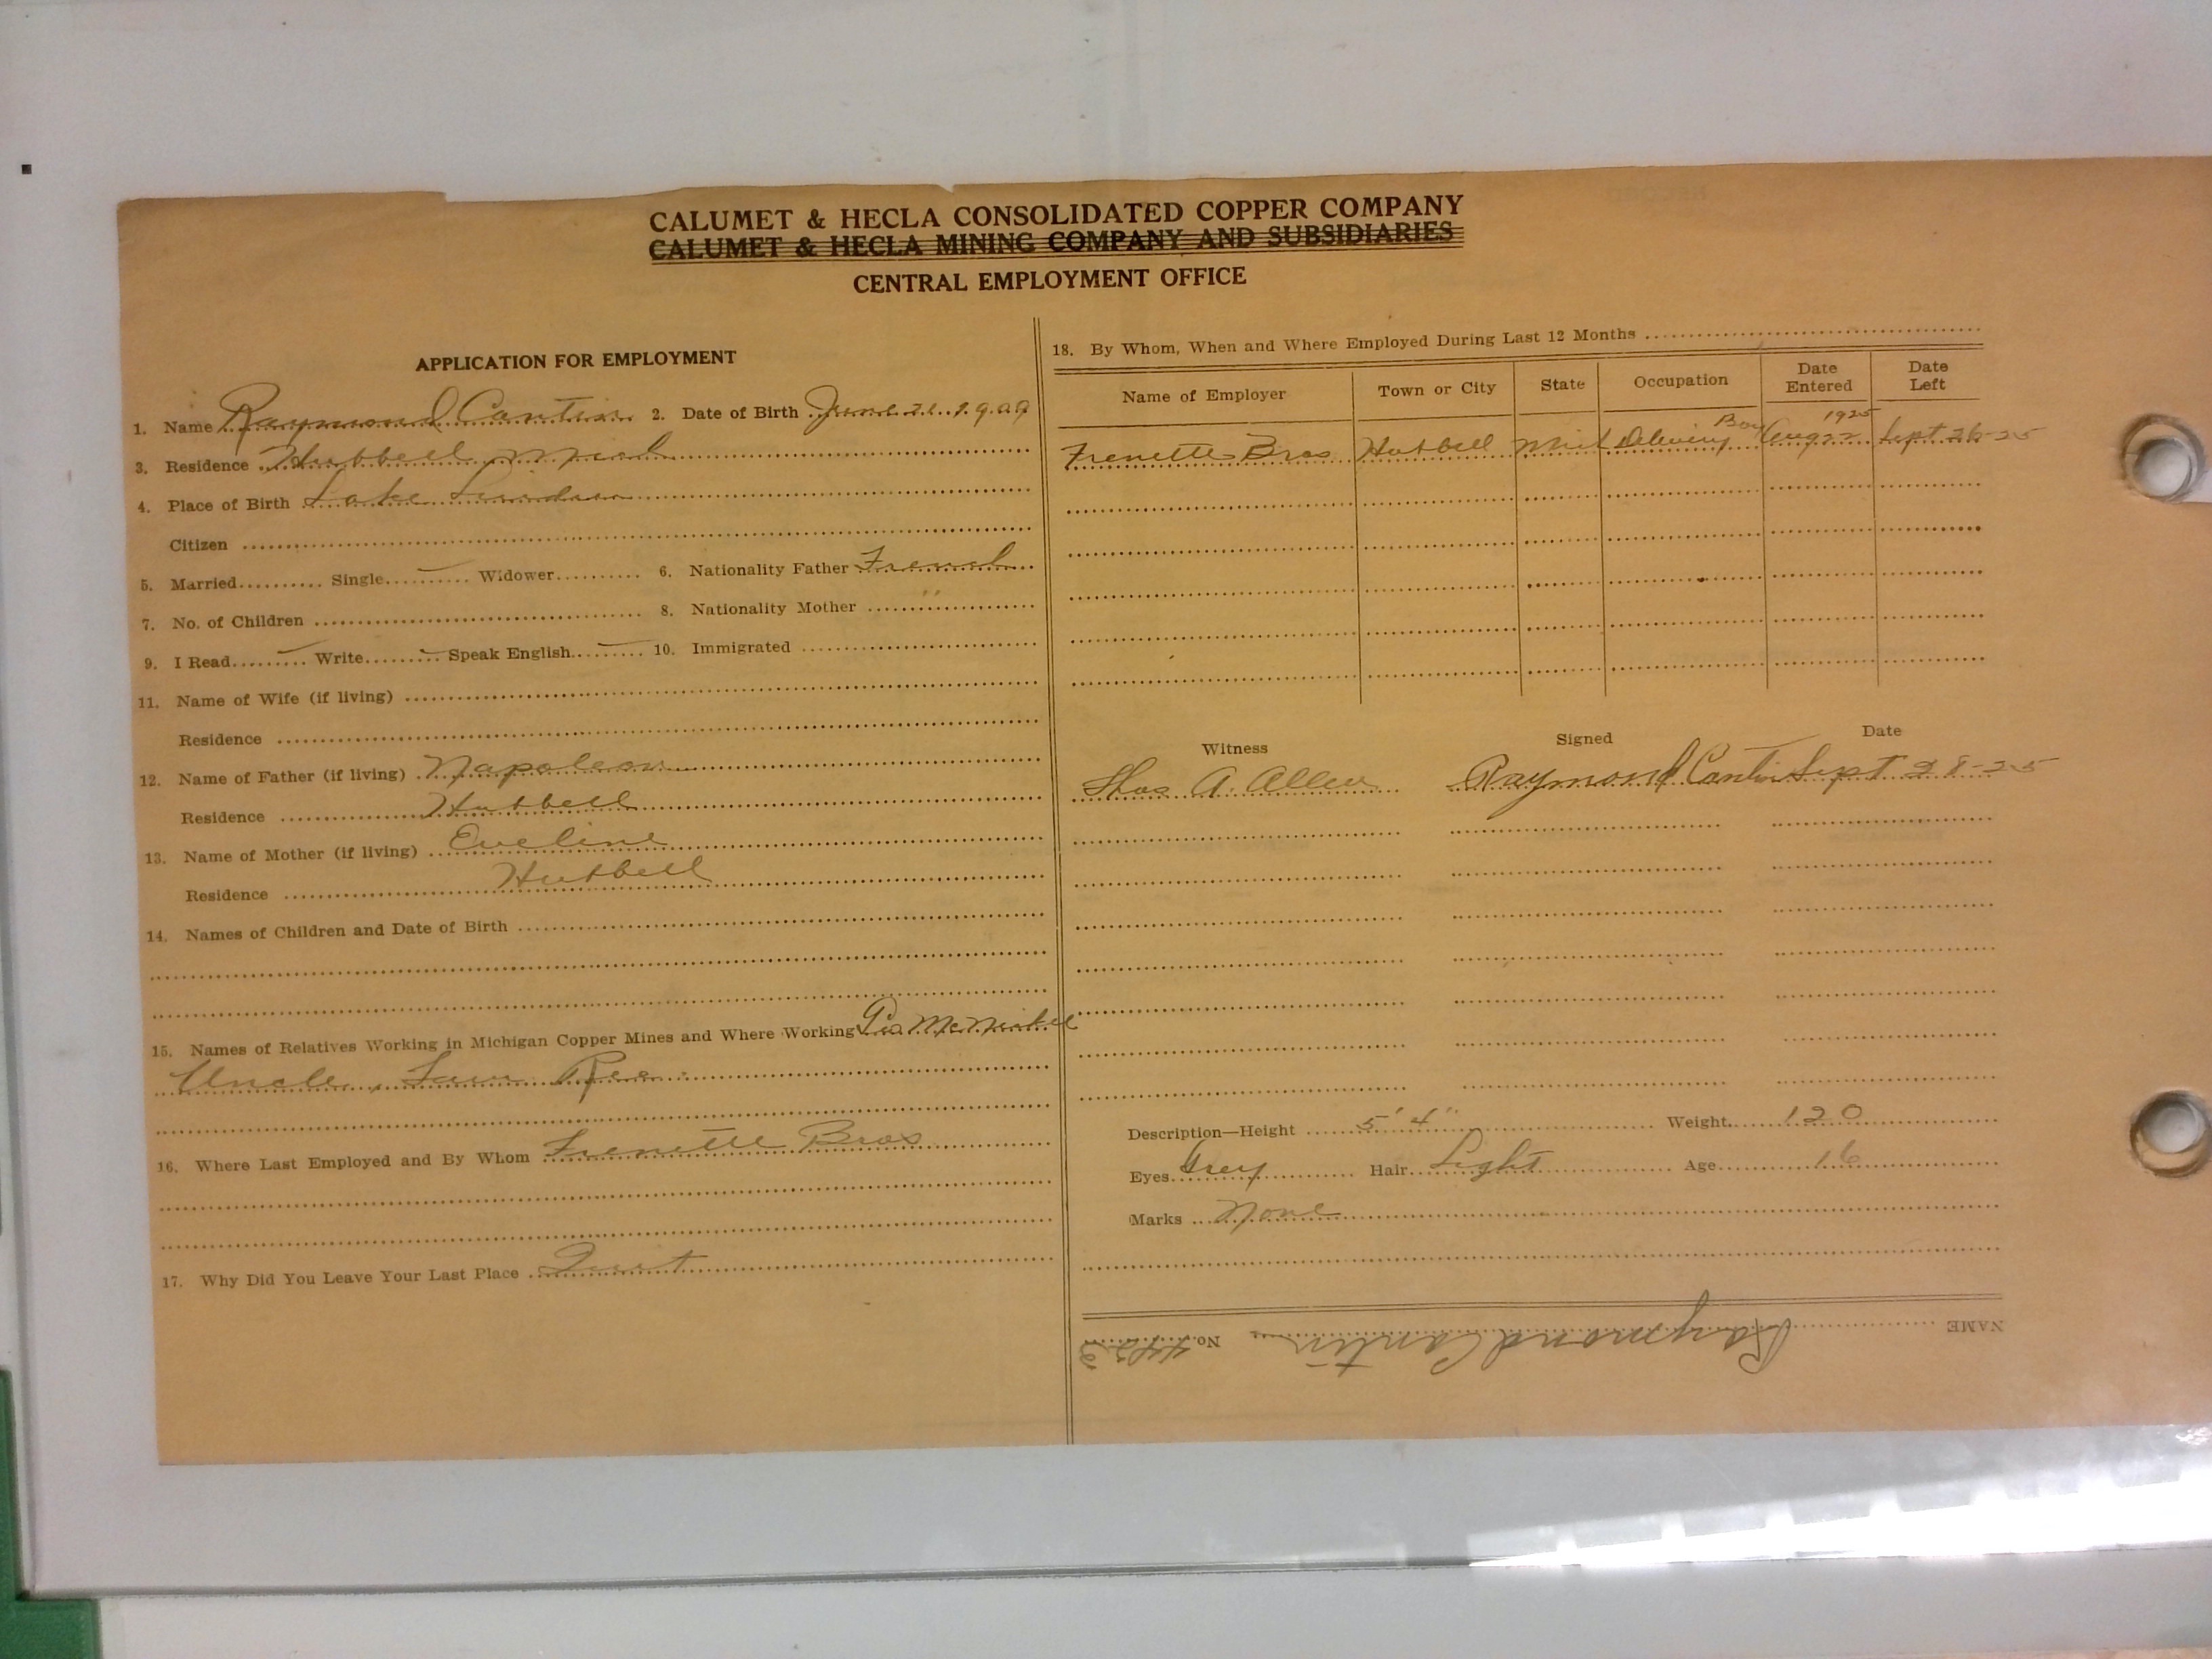 CALUMET & HECLA CONSOLIDATED COPPER COMPANY
CALUMET & HECLA MINING COMPANY AND SUBSIDIARIES
CENTRAL EMPLOYMENT OFFICE
APPLICATION FOR EMPLOYMENT
1. Name Raymond Cantin 2. Date of Birth June 21 1909
3. Residence Hubbell Mich
4. Place of Birth Lake Linden
Citizen
5. Married Single ✓ Widower 6. Nationality Father French
7. No. of Children 8. Nationality Mother "
9. I Read ✓ Write ✓ Speak English ✓ 10. Immigrated
11. Name of Wife (if living)
Residence
12. Name of Father (if living) Napoleon
Residence Hubbell
13. Name of Mother (if living) Eveline
Residence Hubbell
14. Names of Children and Date of Birth
15. Names of Relatives Working in Michigan Copper Mines and Where Working
Uncle,
16. Where Last Employed and By Whom Frenette Bros
17. Why Did You Leave Your Last Place Quit
18. By Whom, When and Where Employed During Last 12 Months
Name of Employer Town or City State Occupation Date Entered Date Left
Frenette Bros Hubbell Mich Delivery Boy Aug 22 1925 Sept 26-25
Witness Signed Date
Thos A. Allen Raymond Cantin Sept 28-25
Description—Height 5' 4" Weight 120
Eyes Grey Hair Light Age 16
Marks None
NAME Raymond Cantin No. 4423